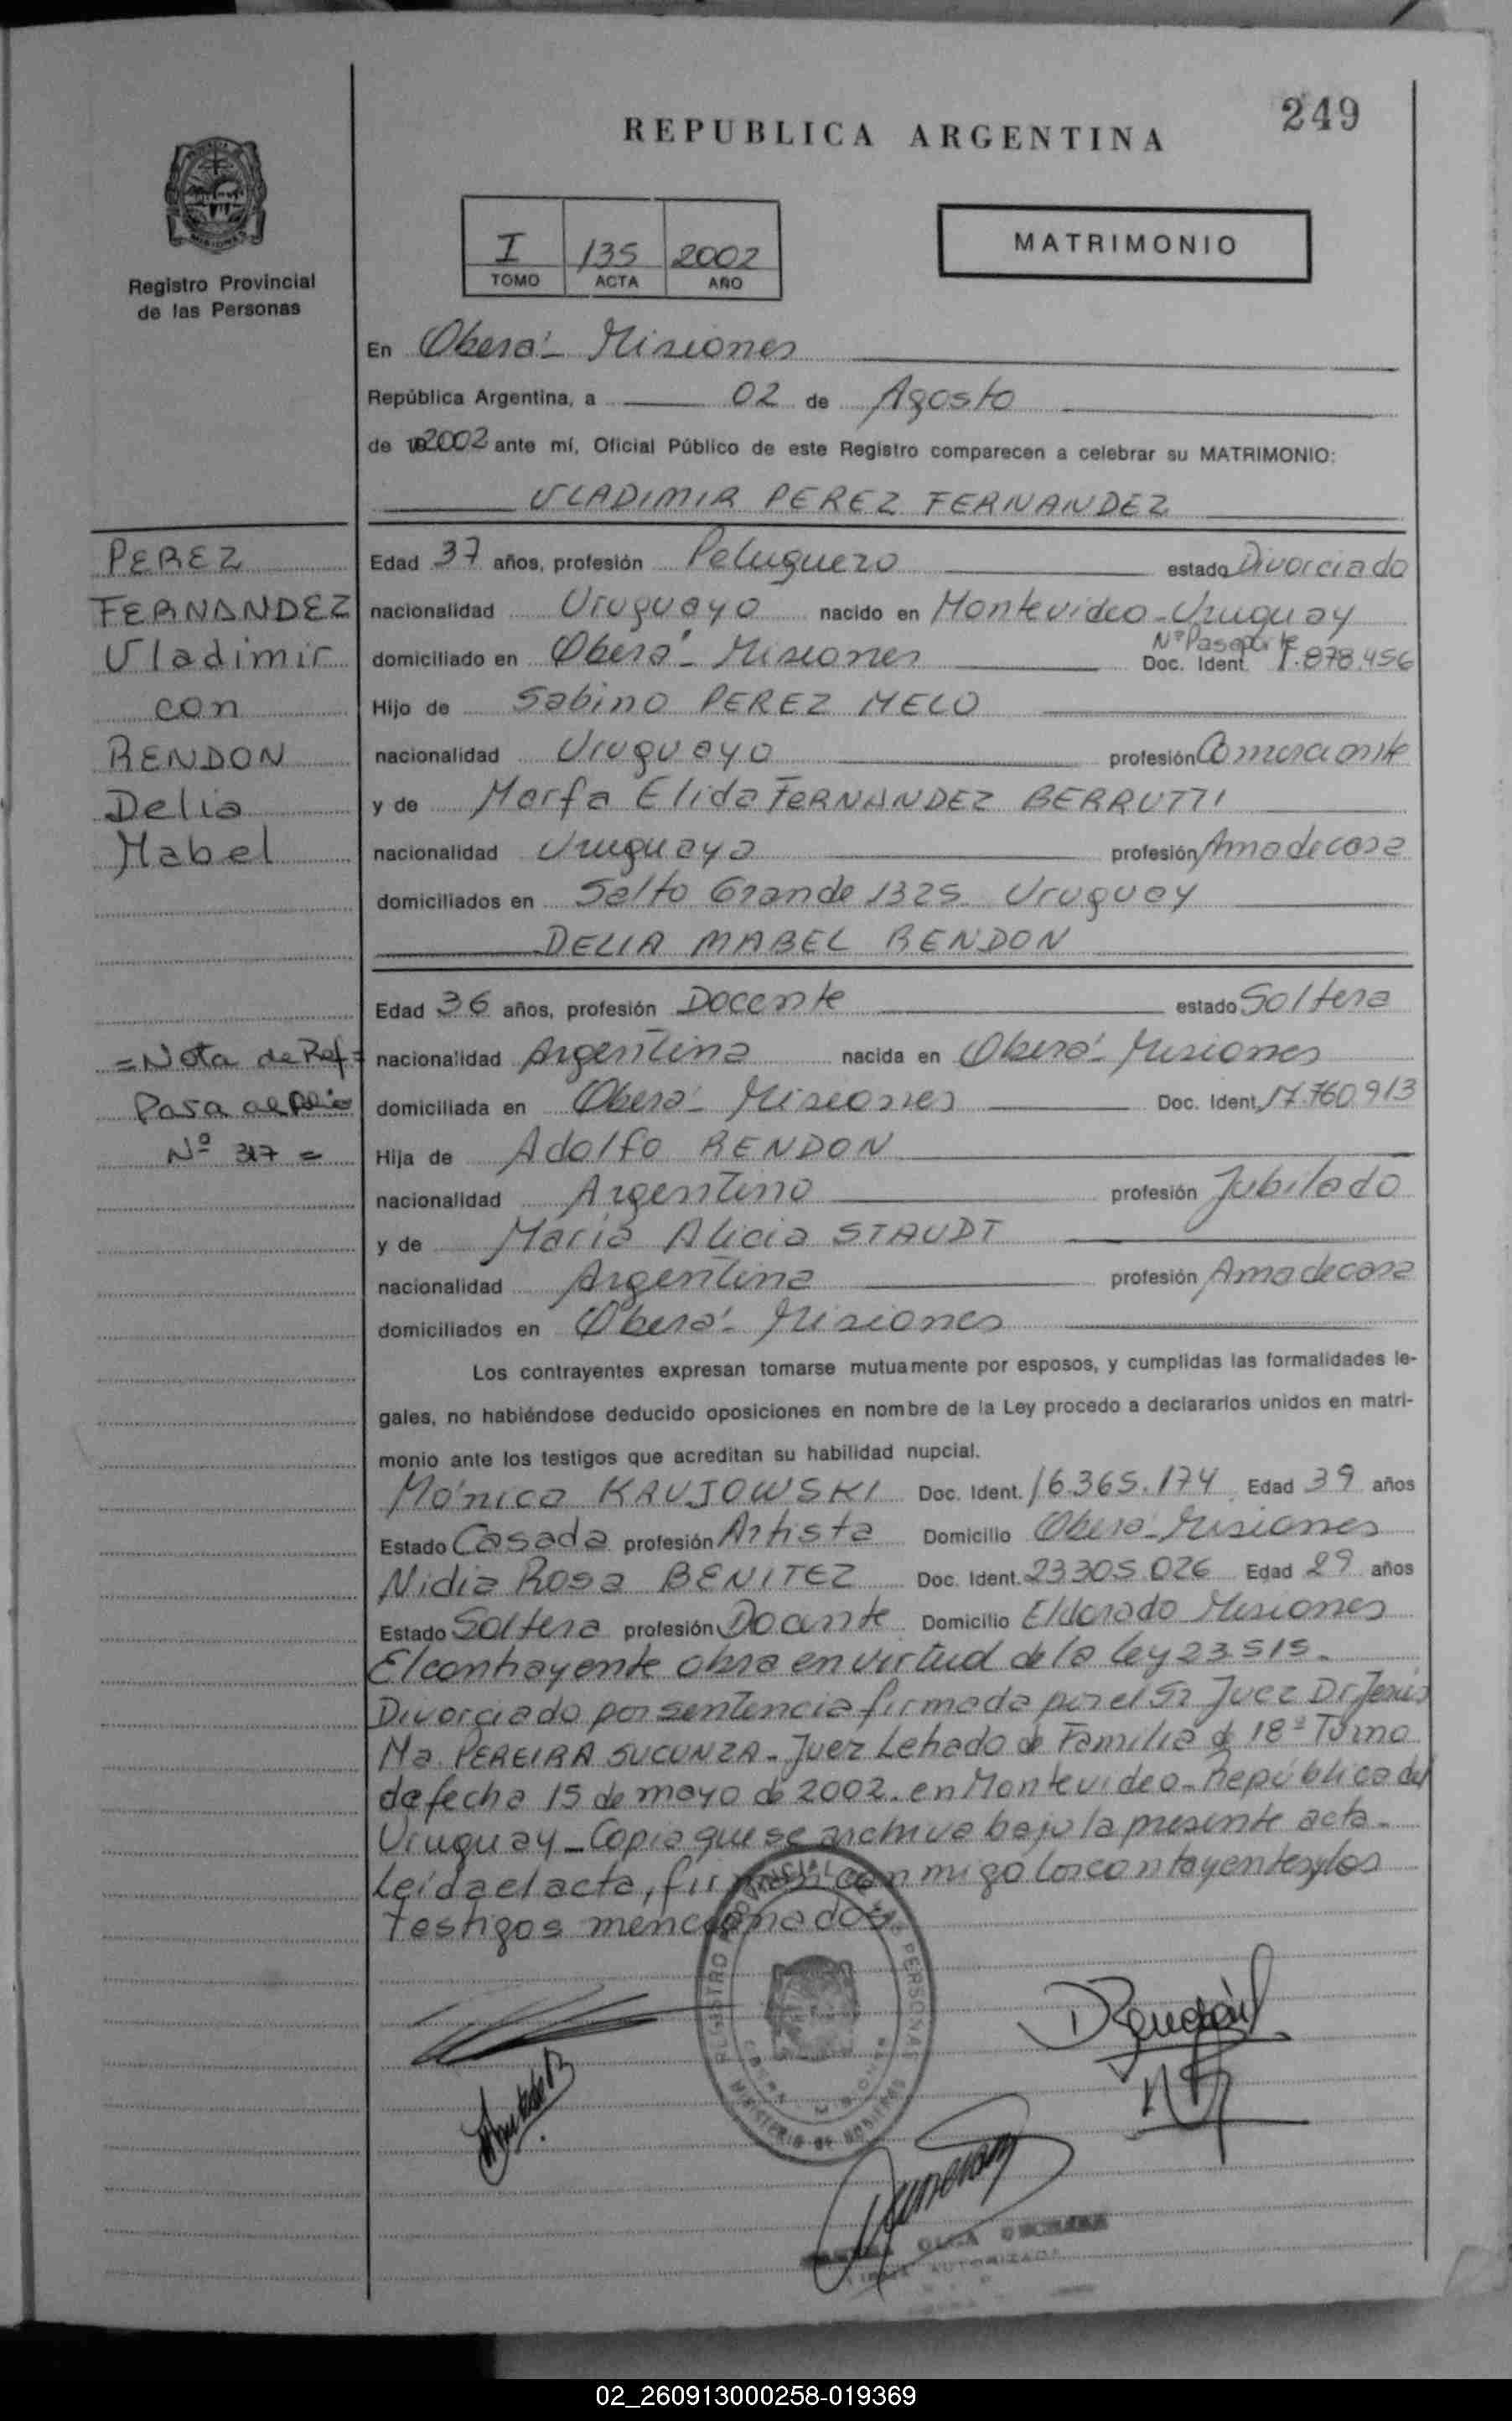 249
REPUBLICA ARGENTINA
I 135 2002
TOMO ACTA AÑO
MATRIMONIO
Registro Provincial
de las Personas
En Oberá - Misiones
República Argentina, a 02 de Agosto
de 2002 ante mí, Oficial Público de este Registro comparecen a celebrar su MATRIMONIO:
VLADIMIR PEREZ FERNANDEZ
PEREZ
FERNANDEZ
Vladimir
con
RENDON
Delia
Mabel
Edad 37 años, profesión Peluquero estado Divorciado
nacionalidad Uruguayo nacido en Montevideo - Uruguay
Nº Pasaporte
domiciliado en Oberá - Misiones Doc. Ident. 1.878.456
Hijo de Sabino PEREZ MELO
nacionalidad Uruguayo profesión Comerciante
y de Marfa Elida FERNANDEZ BERRUTTI
nacionalidad Uruguaya profesión Ama de casa
domiciliados en Salto Grande 1325 Uruguay
DELIA MABEL RENDON
Edad 36 años, profesión Docente estado Soltera
= Nota de Ref =
Pasa al Folio
Nº 317 =
nacionalidad Argentina nacida en Oberá - Misiones
domiciliada en Oberá - Misiones Doc. Ident. 17.760.913
Hija de Adolfo RENDON
nacionalidad Argentino profesión Jubilado
y de María Alicia STAUDT
nacionalidad Argentina profesión Ama de casa
domiciliados en Oberá - Misiones
Los contrayentes expresan tomarse mutuamente por esposos, y cumplidas las formalidades le-
gales, no habiéndose deducido oposiciones en nombre de la Ley procedo a declararlos unidos en matri-
monio ante los testigos que acreditan su habilidad nupcial.
Mónica KAUJOWSKI Doc. Ident. 16.365.174 Edad 39 años
Estado Casada profesión Artista Domicilio Oberá - Misiones
Nidia Rosa BENITEZ Doc. Ident. 23.305.026 Edad 29 años
Estado Soltera profesión Docente Domicilio Eldorado Misiones
El contrayente obra en virtud de la ley 23.515.
Divorciado por sentencia firmada por el Sr Juez Dr Jesús
Ma. PEREIRA SUCUNZA - Juez Letrado de Familia de 18º Turno
de fecha 15 de mayo de 2002. en Montevideo - República del
Uruguay - Copia que se archiva bajo la presente acta -
Leída el acta, firman conmigo los contrayentes y los
testigos mencionados
REGISTRO PROVINCIAL DE LAS PERSONAS
MINISTERIO DE GOBIERNO
DRendón
OLGA
AUTORIZADA
02_260913000258-019369